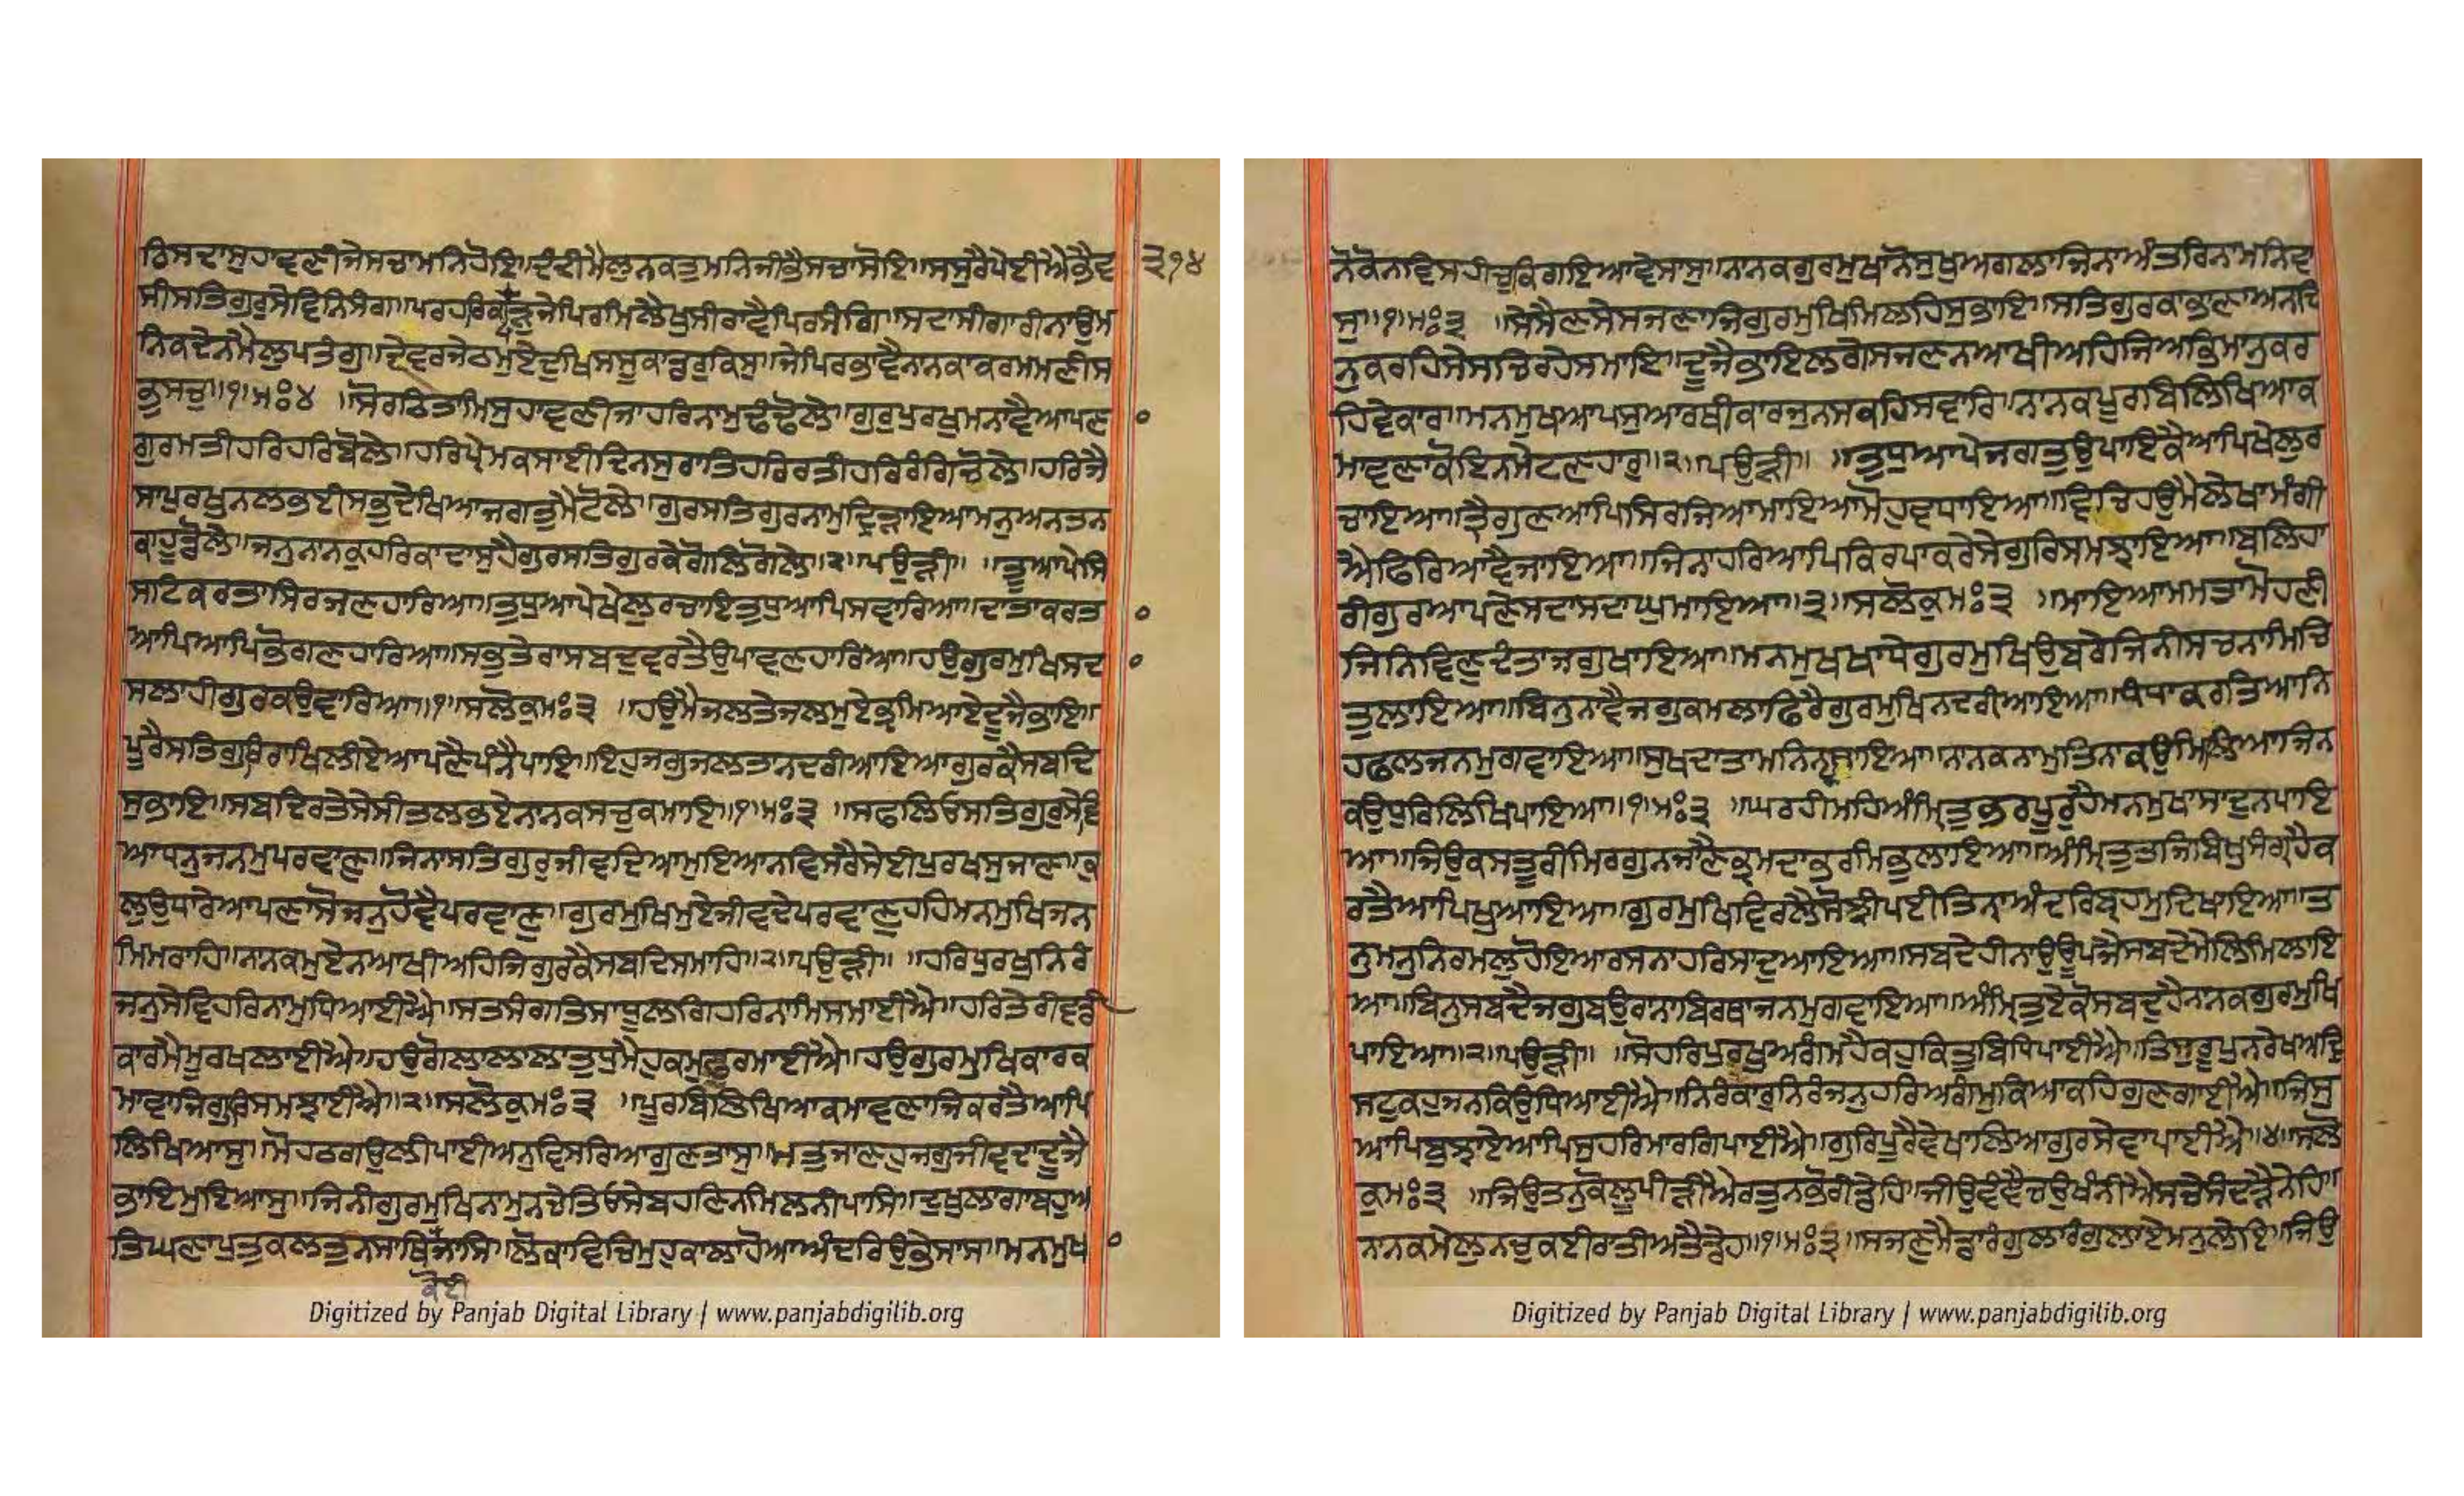 ਠਿਸਦਾਸੁਹਾਵਣੀਜੇਸਚਾਮਨਿਹੋਇ॥ਦੰਦੀਮੈਲੁਨਕਤੁਮਨਿਜੀਭੈਸਚਾਸੋਇ॥ਸਸੁਰੈਪੇਈਐਕੰਤੈਵ ੩੧੪
ਸੀਸਤਿਗੁਰੁਸੇਵਿਨਿਸੰਗ॥ਪਰਹਰਿਕਪੜੁਜੇਪਿਰਮਿਲੈਖੁਸੀਰਾਵੈਪਿਰਸੰਗਿ॥ਸਦਾਸੀਗਾਰੀਨਾਉਮ
ਨਿਕਦੇਨਮੈਲੁਪਤੰਗੁ॥ਦੇਵਰਜੇਠਮੁਏਦੁਖਿਸਸੂਕਾਡਰੁਕਿਸੁ॥ਜੇਪਿਰਭਾਵੈਨਾਨਕਾਕਰਮਮਣੀਸ
ਭੁਸਚੁ॥੧॥ਮਃ੪ ॥ਸੋਰਠਿਤਾਮਿਸੁਹਾਵਣੀਜਾਹਰਿਨਾਮੁਢੰਢੋਲੇ॥ਗੁਰਪੁਰਖੁਮਨਾਵੈਆਪਣਾ
ਗੁਰਮਤੀਹਰਿਹਰਿਬੋਲੇ॥ਹਰਿਪ੍ਰੇਮਕਸਾਈਦਿਨਸੁਰਾਤਿਹਰਿਰਤੀਹਰਿਰੰਗਿਚੋਲੇ॥ਹਰਿਜੈ
ਸਾਪੁਰਖੁਨਲਭਈਸਭੁਦੇਖਿਆਜਗਤੁਮੈਟੋਲੇ॥ਗੁਰਸਤਿਗੁਰਨਾਮੁਦ੍ਰਿੜਾਇਆਮਨੁਅਨਤਨ
ਕਾਹੂਡੋਲੇ॥ਜਨੁਨਾਨਕੁਹਰਿਕਾਦਾਸੁਹੈਗੁਰਸਤਿਗੁਰਕੇਗੋਲਿਗੋਲੇ॥੨॥ਪਉੜੀ॥ ॥ਤੂਆਪੇਸਿ
ਸਟਿਕਰਤਾਸਿਰਜਣਹਾਰਿਆ॥ਤੁਧੁਆਪੇਖੇਲੁਰਚਾਇਤੁਧੁਆਪਿਸਵਾਰਿਆ॥ਦਾਤਾਕਰਤਾ
ਆਪਿਆਪਿਭੋਗਣਹਾਰਿਆ॥ਸਭੁਤੇਰਾਸਬਦੁਵਰਤੈਉਪਾਵਣਹਾਰਿਆ॥ਹਉਗੁਰਮੁਖਿਸਦਾ
ਸਲਾਹੀਗੁਰਕਉਵਾਰਿਆ॥੧॥ਸਲੋਕੁਮਃ੩ ॥ਹਉਮੈਜਲਤੇਜਲਮੁਏਭ੍ਰਮਿਆਏਦੂਜੈਭਾਇ॥
ਪੂਰੈਸਤਿਗੁਰਿਰਾਖਿਲੀਏਆਪਣੈਪੰਨੈਪਾਇ॥ਇਹੁਜਗੁਜਲਤਾਨਦਰੀਆਇਆਗੁਰਕੈਸਬਦਿ
ਸੁਭਾਇ॥ਸਬਦਿਰਤੇਸੇਸੀਤਲਭਏਨਾਨਕਸਚੁਕਮਾਇ॥੧॥ਮਃ੩ ॥ਸਫਲਿਓਸਤਿਗੁਰੁਸੇਵਿ
ਆਧਨੁਜਨਮੁਪਰਵਾਣੁ॥ਜਿਨਾਸਤਿਗੁਰੁਜੀਵਦਿਆਮੁਇਆਨਵਿਸਰੈਸੇਈਪੁਰਖਸੁਜਾਣ॥ਕੁ
ਲੁਉਧਾਰੇਆਪਣਾਸੋਜਨੁਹੋਵੈਪਰਵਾਣੁ॥ਗੁਰਮੁਖਿਮੁਏਜੀਵਦੇਪਰਵਾਣੁਹਹਿਮਨਮੁਖਿਜਨ
ਮਿਮਰਾਹਿ॥ਨਾਨਕਮੁਏਨਆਖੀਅਹਿਜਿਗੁਰਕੈਸਬਦਿਸਮਾਹਿ॥੨॥ਪਉੜੀ॥ ॥ਹਰਿਪੁਰਖੁਨਿਰੰ
ਜਨੁਸੇਵਿਹਰਿਨਾਮੁਧਿਆਈਐ॥ਸਤਸੰਗਤਿਸਾਧੂਲਗਿਹਰਿਨਾਮਿਸਮਾਈਐ॥ਹਰਿਤੇਰੀਵਡੀ
ਕਾਰਮੈਮੂਰਖਲਾਈਐ॥ਹਉਗੋਲਾਲਾਲਾਤੁਧੁਮੈਹੁਕਮੁਫੁਰਮਾਈਐ॥ਹਉਗੁਰਮੁਖਿਕਾਰਕ
ਮਾਵਾਜਿਗੁਰਿਸਮਝਾਈਐ॥੨॥ਸਲੋਕੁਮਃ੩ ॥ਪੂਰਬਿਲਿਖਿਆਕਮਾਵਣਾਜਿਕਰਤੈਆਪਿ
ਲਿਖਿਆਸੁ॥ਮੋਹਠਗਉਲੀਪਾਈਅਨੁਵਿਸਰਿਆਗੁਣਤਾਸੁ॥ਮਤੁਜਾਣਹੁਜਗੁਜੀਵਦਾਦੂਜੈ
ਭਾਇਮੁਇਆਸੁ॥ਜਿਨੀਗੁਰਮੁਖਿਨਾਮੁਨਚੇਤਿਓਸੇਬਹਣਿਨਮਿਲਨੀਪਾਸਿ॥ਦੁਖੁਲਾਗਾਬਹੁਅ
ਤਿਘਣਾਪੁਤੁਕਲਤੁਨਸਾਥਿਜਾਸਿ॥ਲੋਕਾਵਿਚਿਮੁਹੁਕਾਲਾਹੋਆਅੰਦਰਿਉਭੇਸਾਸ॥ਮਨਮੁਖ
ਕੋਈ
Digitized by Panjab Digital Library | www.panjabdigilib.org
ਨੋਕੋਨਵਿਸਹੀਚੁਕਿਗਇਆਵੇਸਾਸੁ॥ਨਾਨਕਗੁਰਮੁਖਾਨੋਸੁਖੁਅਗਲਾਜਿਨਾਅੰਤਰਿਨਾਮਨਿਵਾ
ਸੁ॥੧॥ਮਃ੩ ॥ਸੇਸੈਣਸੇਸਜਣਾਜਿਗੁਰਮੁਖਿਮਿਲਹਿਸੁਭਾਇ॥ਸਤਿਗੁਰਕਾਭਾਣਾਅਨਦਿ
ਨੁਕਰਹਿਸੇਸਚਿਰਹੇਸਮਾਇ॥ਦੂਜੈਭਾਇਲਗੇਸਜਣਨਆਖੀਅਹਿਜਿਅਭਿਮਾਨੁਕਰ
ਹਿਵੇਕਾਰ॥ਮਨਮੁਖਆਪਸੁਆਰਥੀਕਾਰਜੁਨਸਕਹਿਸਵਾਰਿ॥ਨਾਨਕਪੂਰਬਿਲਿਖਿਆਕ
ਮਾਵਣਾਕੋਇਨਮੇਟਣਹਾਰੁ॥੨॥ਪਉੜੀ॥ ॥ਤੁਧੁਆਪੇਜਗਤੁਉਪਾਇਕੈਆਪਿਖੇਲੁਰ
ਚਾਇਆ॥ਤ੍ਰੈਗੁਣਆਪਿਸਿਰਜਿਆਮਾਇਆਮੋਹੁਵਧਾਇਆ॥ਵਿਚਿਹਉਮੈਲੇਖਾਮੰਗੀ
ਐਫਿਰਿਆਵੈਜਾਇਆ॥ਜਿਨਾਹਰਿਆਪਿਕਿਰਪਾਕਰੇਸੇਗੁਰਿਸਮਝਾਇਆ॥ਬਲਿਹਾ
ਰੀਗੁਰਆਪਣੇਸਦਾਸਦਾਘੁਮਾਇਆ॥੩॥ਸਲੋਕੁਮਃ੩ ॥ਮਾਇਆਮਮਤਾਮੋਹਣੀ
ਜਿਨਿਵਿਣੁਦੰਤਾਜਗੁਖਾਇਆ॥ਮਨਮੁਖਖਾਧੇਗੁਰਮੁਖਿਉਬਰੇਜਿਨੀਸਚਨਾਮਿਚਿ
ਤੁਲਾਇਆ॥ਬਿਨੁਨਾਵੈਜਗੁਕਮਲਾਫਿਰੈਗੁਰਮੁਖਿਨਦਰੀਆਇਆ॥ਧੰਧਾਕਰਤਿਆਨਿ
ਹਫਲਜਨਮੁਗਵਾਇਆ॥ਸੁਖਦਾਤਾਮਨਿਨਵਸਾਇਆ॥ਨਾਨਕਨਾਮੁਤਿਨਾਕਉਮਿਲਿਆਜਿਨ
ਕਉਧੁਰਿਲਿਖਿਪਾਇਆ॥੧॥ਮਃ੩ ॥ਘਰਹੀਮਹਿਅੰਮ੍ਰਿਤੁਭਰਪੂਰੁਹੈਮਨਮੁਖਾਸਾਦੁਨਪਾਇ
ਆ॥ਜਿਉਕਸਤੂਰੀਮਿਰਗੁਨਜਾਣੈਭ੍ਰਮਦਾਭਰਮਿਭੁਲਾਇਆ॥ਅੰਮ੍ਰਿਤੁਤਜਿਬਿਖੁਸੰਗ੍ਰਹੈਕ
ਰਤੈਆਪਿਖੁਆਇਆ॥ਗੁਰਮੁਖਿਵਿਰਲੈਸੋਝੀਪਈਤਿਨਾਅੰਦਰਿਬ੍ਰਹਮੁਦਿਖਾਇਆ॥ਤ
ਨੁਮਨੁਨਿਰਮਲੁਹੋਇਆਰਸਨਾਹਰਿਸਾਦੁਆਇਆ॥ਸਬਦੇਹੀਨਾਉਊਪਜੈਸਬਦੇਮੇਲਿਮਿਲਾਇ
ਆ॥ਬਿਨੁਸਬਦੈਜਗੁਬਉਰਾਨਾਬਿਰਥਾਜਨਮੁਗਵਾਇਆ॥ਅੰਮ੍ਰਿਤੁਏਕੋਸਬਦੁਹੈਨਾਨਕਗੁਰਮੁਖਿ
ਪਾਇਆ॥੨॥ਪਉੜੀ॥ ॥ਸੋਹਰਿਪੁਰਖੁਅਗੰਮਹੈਕਹੁਕਿਤੁਬਿਧਿਪਾਈਐ॥ਤਿਸੁਰੂਪੁਨਰੇਖਅਦ੍ਰਿ
ਸਟੁਕਹੁਜਨਕਿਉਧਿਆਈਐ॥ਨਿਰੰਕਾਰੁਨਿਰੰਜਨੁਹਰਿਅਗਮੁਕਿਆਕਹਿਗੁਣਗਾਈਐ॥ਜਿਸੁ
ਆਪਿਬੁਝਾਏਆਪਿਸੁਹਰਿਮਾਰਗਿਪਾਈਐ॥ਗੁਰਿਪੂਰੈਵੇਖਾਲਿਆਗੁਰਸੇਵਾਪਾਈਐ॥੪॥ਸਲੋ
ਕੁਮਃ੩ ॥ਜਿਉਤਨੁਕੋਲੂਪੀੜੀਐਰਤੁਨਭੋਰੀਡੇਹਿ॥ਜੀਉਵੰਞੈਚਉਖੰਨੀਐਸਚੇਸੰਦੜੈਨੇਹਿ॥
ਨਾਨਕਮੇਲੁਨਚੁਕਈਰਾਤੀਅਤੈਡੇਹ॥੧॥ਮਃ੩॥ਸਜਣੁਮੈਡਾਰੰਗੁਲਾਰੰਗੁਲਾਏਮਨੁਲੇਇ॥ਜਿਉ
Digitized by Panjab Digital Library | www.panjabdigilib.org